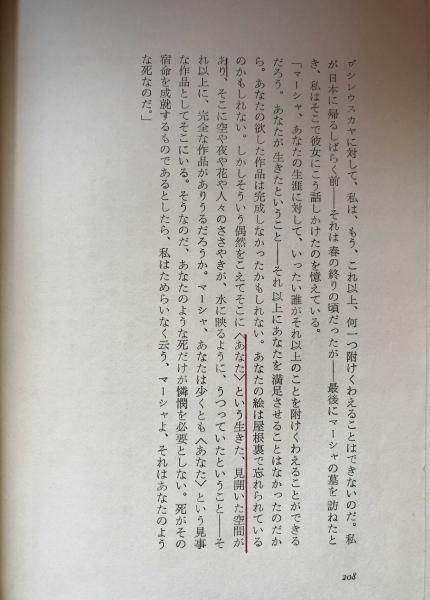 ヷシレウスカヤに対して、私は、もう、これ以上、何一つ附けくわえることはできないのだ。私
が日本に帰るしばらく前――それは春の終りの頃だったが――最後にマーシャの墓を訪ねたと
き、私はそこで彼女にこう話しかけたのを憶えている。
「マーシャ、あなたの生涯に対して、いったい誰がそれ以上のことを附けくわえることができる
だろう。あなたが生きたということ――それ以上にあなたを満足させることはなかったのだか
ら。あなたの欲した作品は完成しなかったかもしれない。あなたの絵は屋根裏で忘れられている
のかもしれない。しかしそういう偶然をこえてそこに〈あなた〉という生きた、見開いた空間が
あり、そこに空や夜や花や人々のささやきが、水に映るように、うつっていたということ――そ
れ以上に、完全な作品がありうるだろうか。マーシャ、あなたは少くとも〈あなた〉という見事
な作品としてそこにいる。そうなのだ、あなたのような死だけが憐憫を必要としない。死がその
宿命を成就するものであるとしたら、私はためらいなく云う、マーシャよ、それはあなたのよう
な死なのだ。」
208